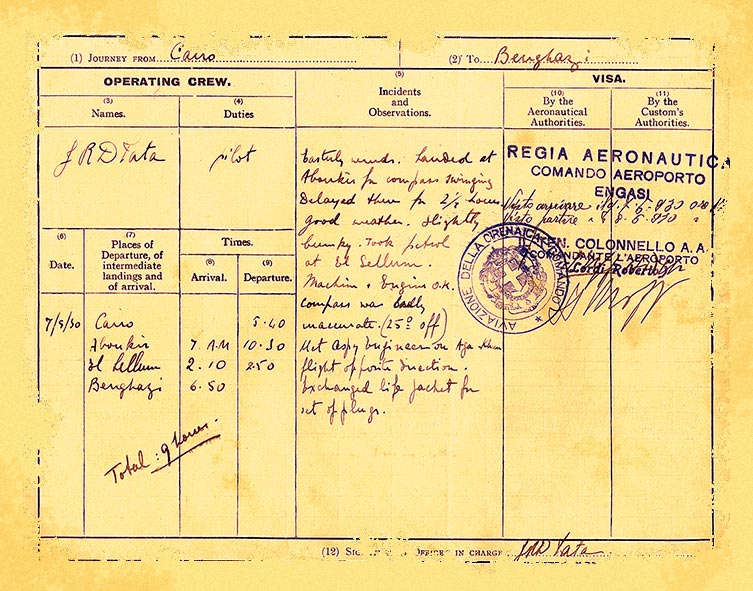 (1) JOURNEY FROM....Cairo....................
(2) TO....Benghazi..............
OPERATING CREW.
(3)
Names.
(4)
Duties
J R D Tata
pilot
(6)
Date.
(7)
Places of
Departure, of
intermediate
landings and
of arrival.
Times.
(8)
Arrival.
(9)
Departure.
7/5/30 Cairo 5.40
Aboukir 7 AM 10.30
El Sellum 2.10 2.50
Benghazi 6.50
Total: 9 hours.
(5)
Incidents
and
Observations.
Easterly winds. Landed at
Aboukir for compass swinging
Delayed there for 2½ hours
good weather. Slightly
bumpy. Took petrol
at El Sellum.
Machine & Engine O.K.
compass was badly
inaccurate. (25° off)
Met Aspy Engineer on Aga Khan
flight opposite direction.
Exchanged life jacket for
set of plugs.
VISA.
(10)
By the
Aeronautical
Authorities.
(11)
By the
Custom's
Authorities.
REGIA AERONAUTICA
COMANDO AEROPORTO
ENGASI
Visto arrivare 7-5-930 ore
Visto partire 8-5-930
IL TEN. COLONNELLO A. A.
COMANDANTE L'AEROPORTO
Roberto
AVIAZIONE DELLA CIRENAICA COMANDO
(12) OFFICER IN CHARGE JRD Tata